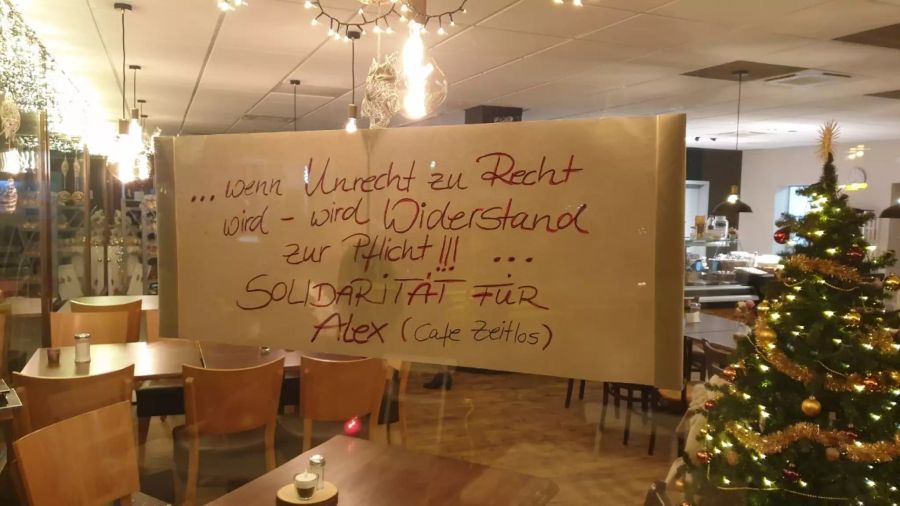 ... wenn Unrecht zu Recht
wird - wird Widerstand
zur Pflicht!!! ...
SOLIDARITÄT FÜR
Alex (Cafe Zeitlos)